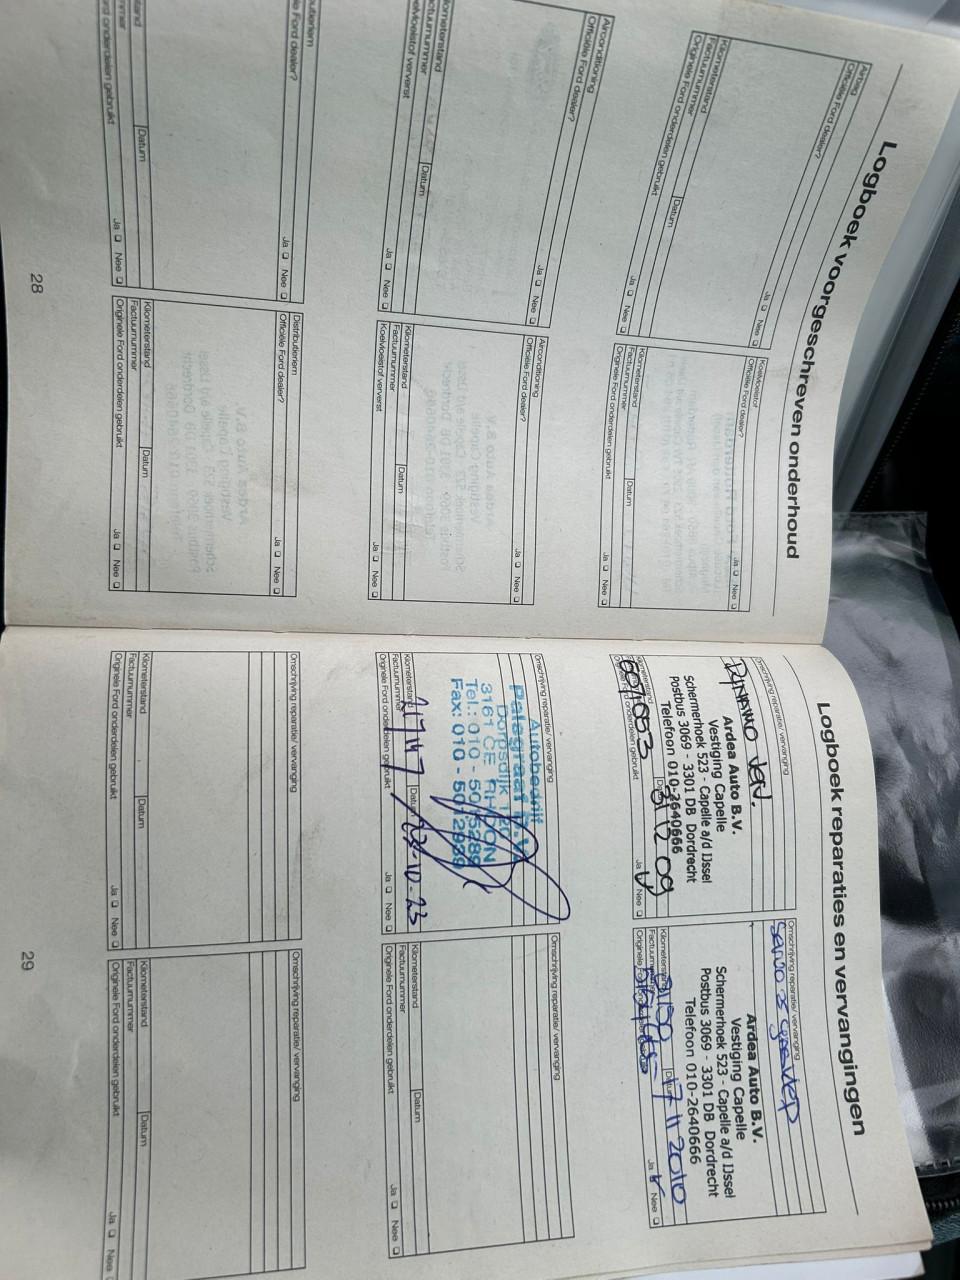 Logboek voorgeschreven onderhoud
Airbag
Officiële Ford dealer?
Ja Nee
Kilometerstand
Factuurnummer
Datum
Originele Ford onderdelen gebruikt
Ja Nee
Koelvloeistof
Officiële Ford dealer?
Ja Nee
Kilometerstand
Factuurnummer
Datum
Originele Ford onderdelen gebruikt
Ja Nee
Airconditioning
Officiële Ford dealer?
Ja Nee
Kilometerstand
Factuurnummer
Datum
Koelvloeistof ververst
Ja Nee
Airconditioning
Officiële Ford dealer?
Ja Nee
Kilometerstand
Factuurnummer
Datum
Koelvloeistof ververst
Ja Nee
Ford dealer?
Ja Nee
Datum
onderdelen gebruikt
Ja Nee
Distributieriem
Officiële Ford dealer?
Ja Nee
Kilometerstand
Factuurnummer
Datum
Originele Ford onderdelen gebruikt
Ja Nee
28
Logboek reparaties en vervangingen
Omschrijving reparatie/ vervanging
Dynamo verv.
Ardea Auto B.V.
Vestiging Capelle
Schermerhoek 523 - Capelle a/d IJssel
Postbus 3069 - 3301 DB Dordrecht
Telefoon 010-2640666
Kilometerstand
Ford onderdelen gebruikt
Ja Nee
Omschrijving reparatie/ vervanging
Ardea Auto B.V.
Vestiging Capelle
Schermerhoek 523 - Capelle a/d IJssel
Postbus 3069 - 3301 DB Dordrecht
Telefoon 010-2640666
Kilometerstand
Factuurnummer
17 11 2010
Originele
Ja Nee
Omschrijving reparatie/ vervanging
Autobedrijf
Palsgraaf B.V.
Dorpsdijk
3161 CE RHOON
Tel.: 010 -
Fax: 010 -
Kilometerstand
Factuurnummer
Datum
Originele Ford onderdelen gebruikt
Ja Nee
Omschrijving reparatie/ vervanging
Kilometerstand
Factuurnummer
Datum
Originele Ford onderdelen gebruikt
Ja Nee
Omschrijving reparatie/ vervanging
Kilometerstand
Factuurnummer
Datum
Originele Ford onderdelen gebruikt
Ja Nee
Omschrijving reparatie/ vervanging
Kilometerstand
Factuurnummer
Datum
Originele Ford onderdelen gebruikt
Ja Nee
29